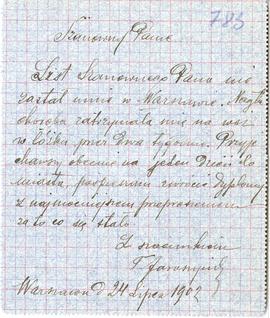 783
Szanowny Panie
List Szanownego Pana nie
zastał mnie w Warszawie. Nagła
choroba zatrzymała mnie na wsi
w łóżku przez dwa tygodnie. Przyje
chawszy obecnie na jeden dzień do
miasta, pośpieszam zwrócić dyplomy
z najmocniejszem przeproszeniem
za to co się stało.
Z szacunkiem
F. 
Warszawa d 24 Lipca 1902